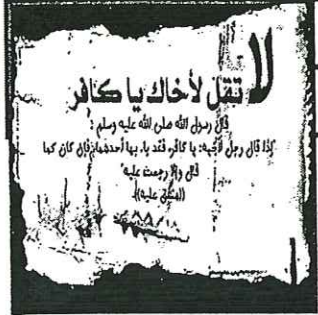 لا تقل لأخاك يا كافر
قال رسول الله صلى الله عليه وسلم :
إذا قال رجل لأخيه: يا كافر، فقد باء بها أحدهما، فإن كان كما
قال وإلا رجعت عليه"
((متفق عليه)).